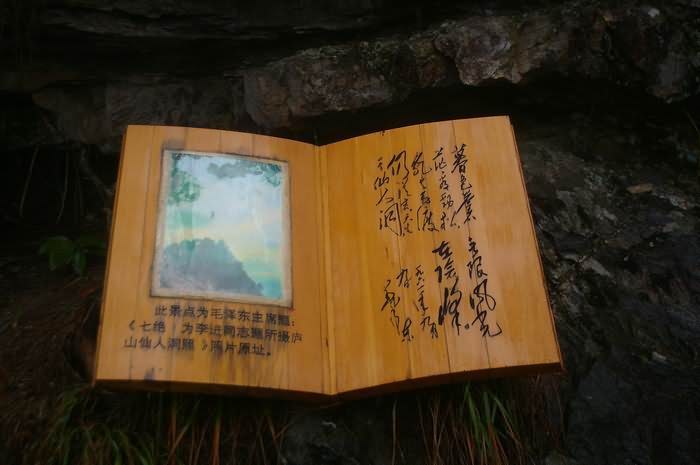 此景点为毛泽东主席题:
《七绝 为李进同志题所摄庐
山仙人洞照》照片原址。
暮色苍
茫看劲松
乱云飞渡
仍从容天生
一个仙人洞
无限风光
在险峰
一九六一年九月
九日